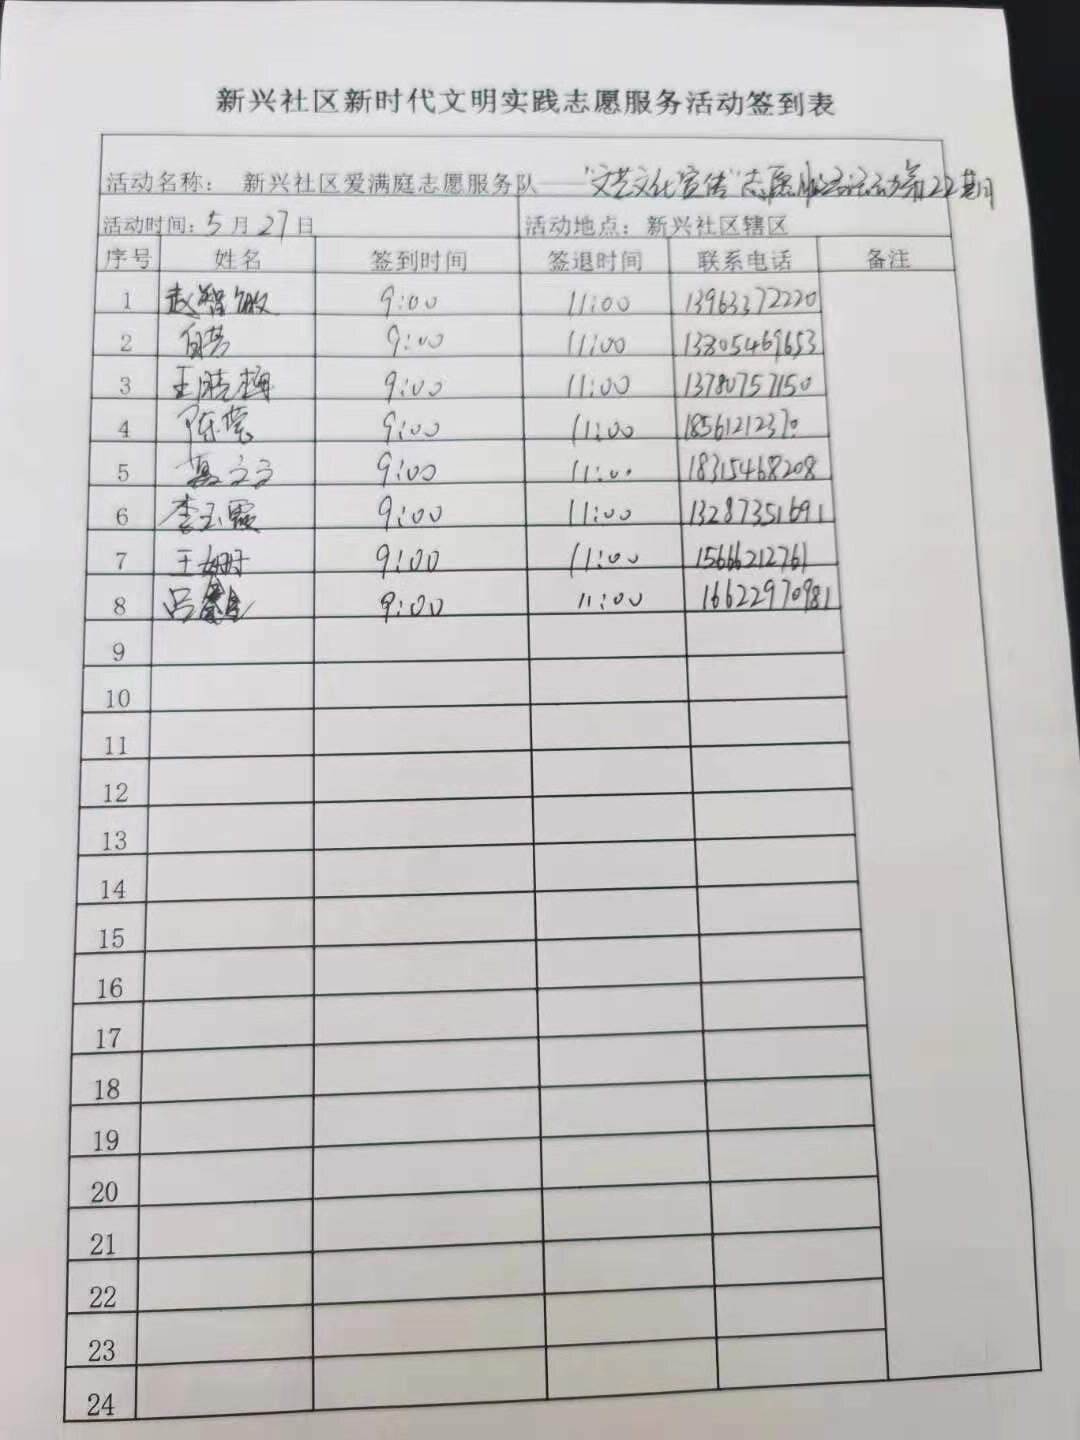 新兴社区新时代文明实践志愿服务活动签到表
活动名称： 新兴社区爱满庭志愿服务队——"文艺文化宣传"志愿服务活动第22期
活动时间：5月27日 活动地点：新兴社区辖区
序号 姓名 签到时间 签退时间 联系电话 备注
1 赵智敏 9:00 11:00 13963372220
2 9:00 11:00 13805469653
3 王晓梅 9:00 11:00 13780757150
4 陈莹 9:00 11:00
5 聂文文 9:00 11:00 18315468208
6 李玉霞 9:00 11:00 13287351691
7 王姗时 9:00 11:00 15666212761
8 吕 9:00 11:00 16622970981
9
10
11
12
13
14
15
16
17
18
19
20
21
22
23
24